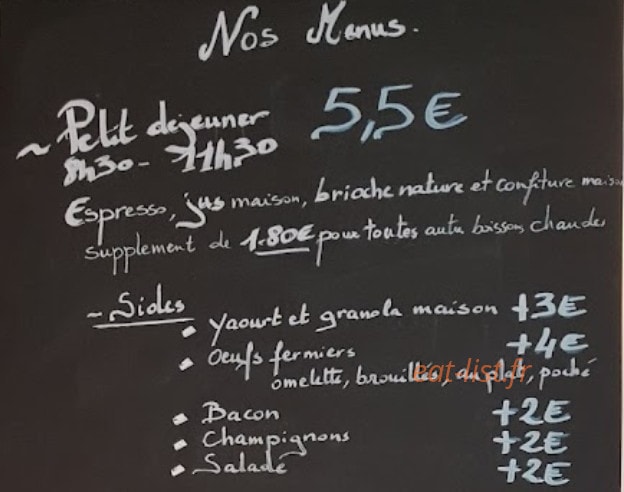 Nos Menus.
~ Petit dejeuner 5,5€
8h30 - 11h30
Espresso, jus maison, brioche nature et confiture maison
supplement de 1.80€ pour toutes autre boissons chaudes
~ Sides
- Yaourt et granola maison +3€
- Oeufs fermiers +4€
omelette, brouillés, au plat, poché
eat-list.fr
- Bacon +2€
- Champignons +2€
- Salade +2€